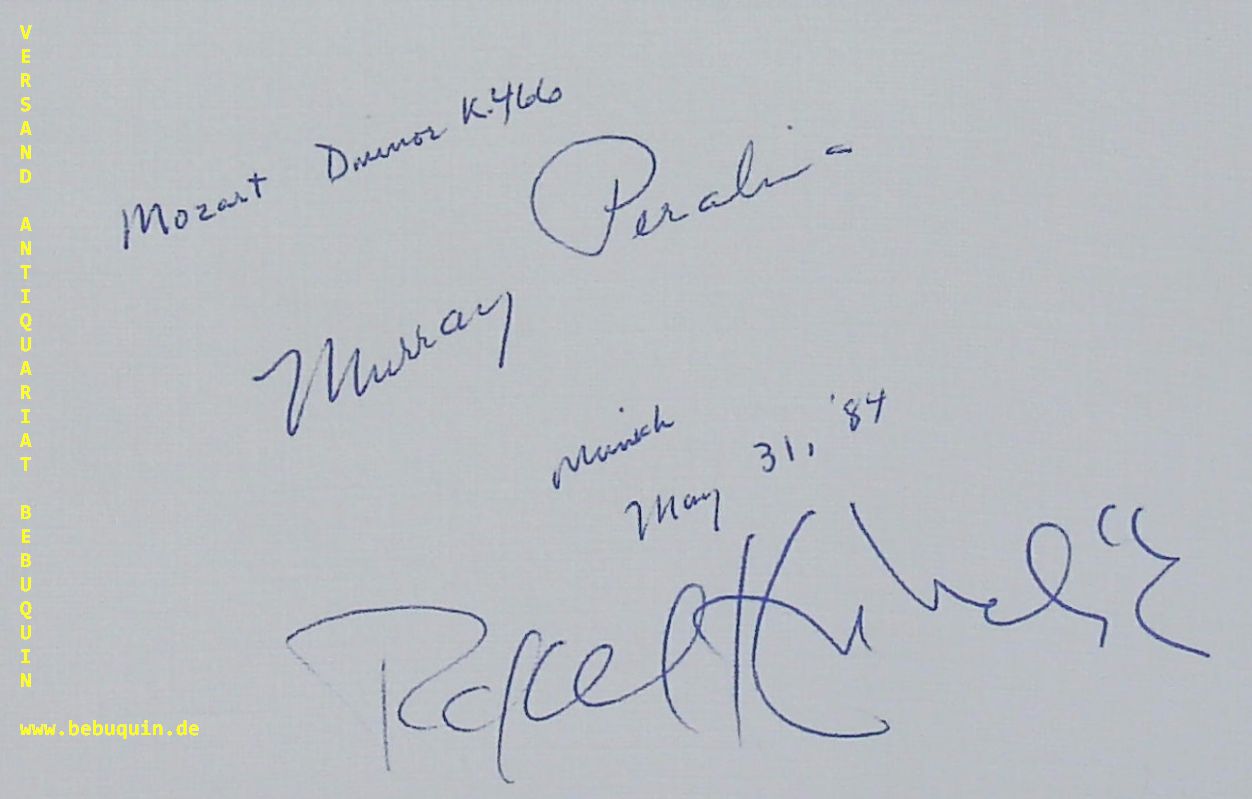 VERSAND ANTIQUARIAT BEBUQUIN
www.bebuquin.de
Mozart D minor K.466
Murray Perahia
Munich
May 31, '84
Rafael Kubelik